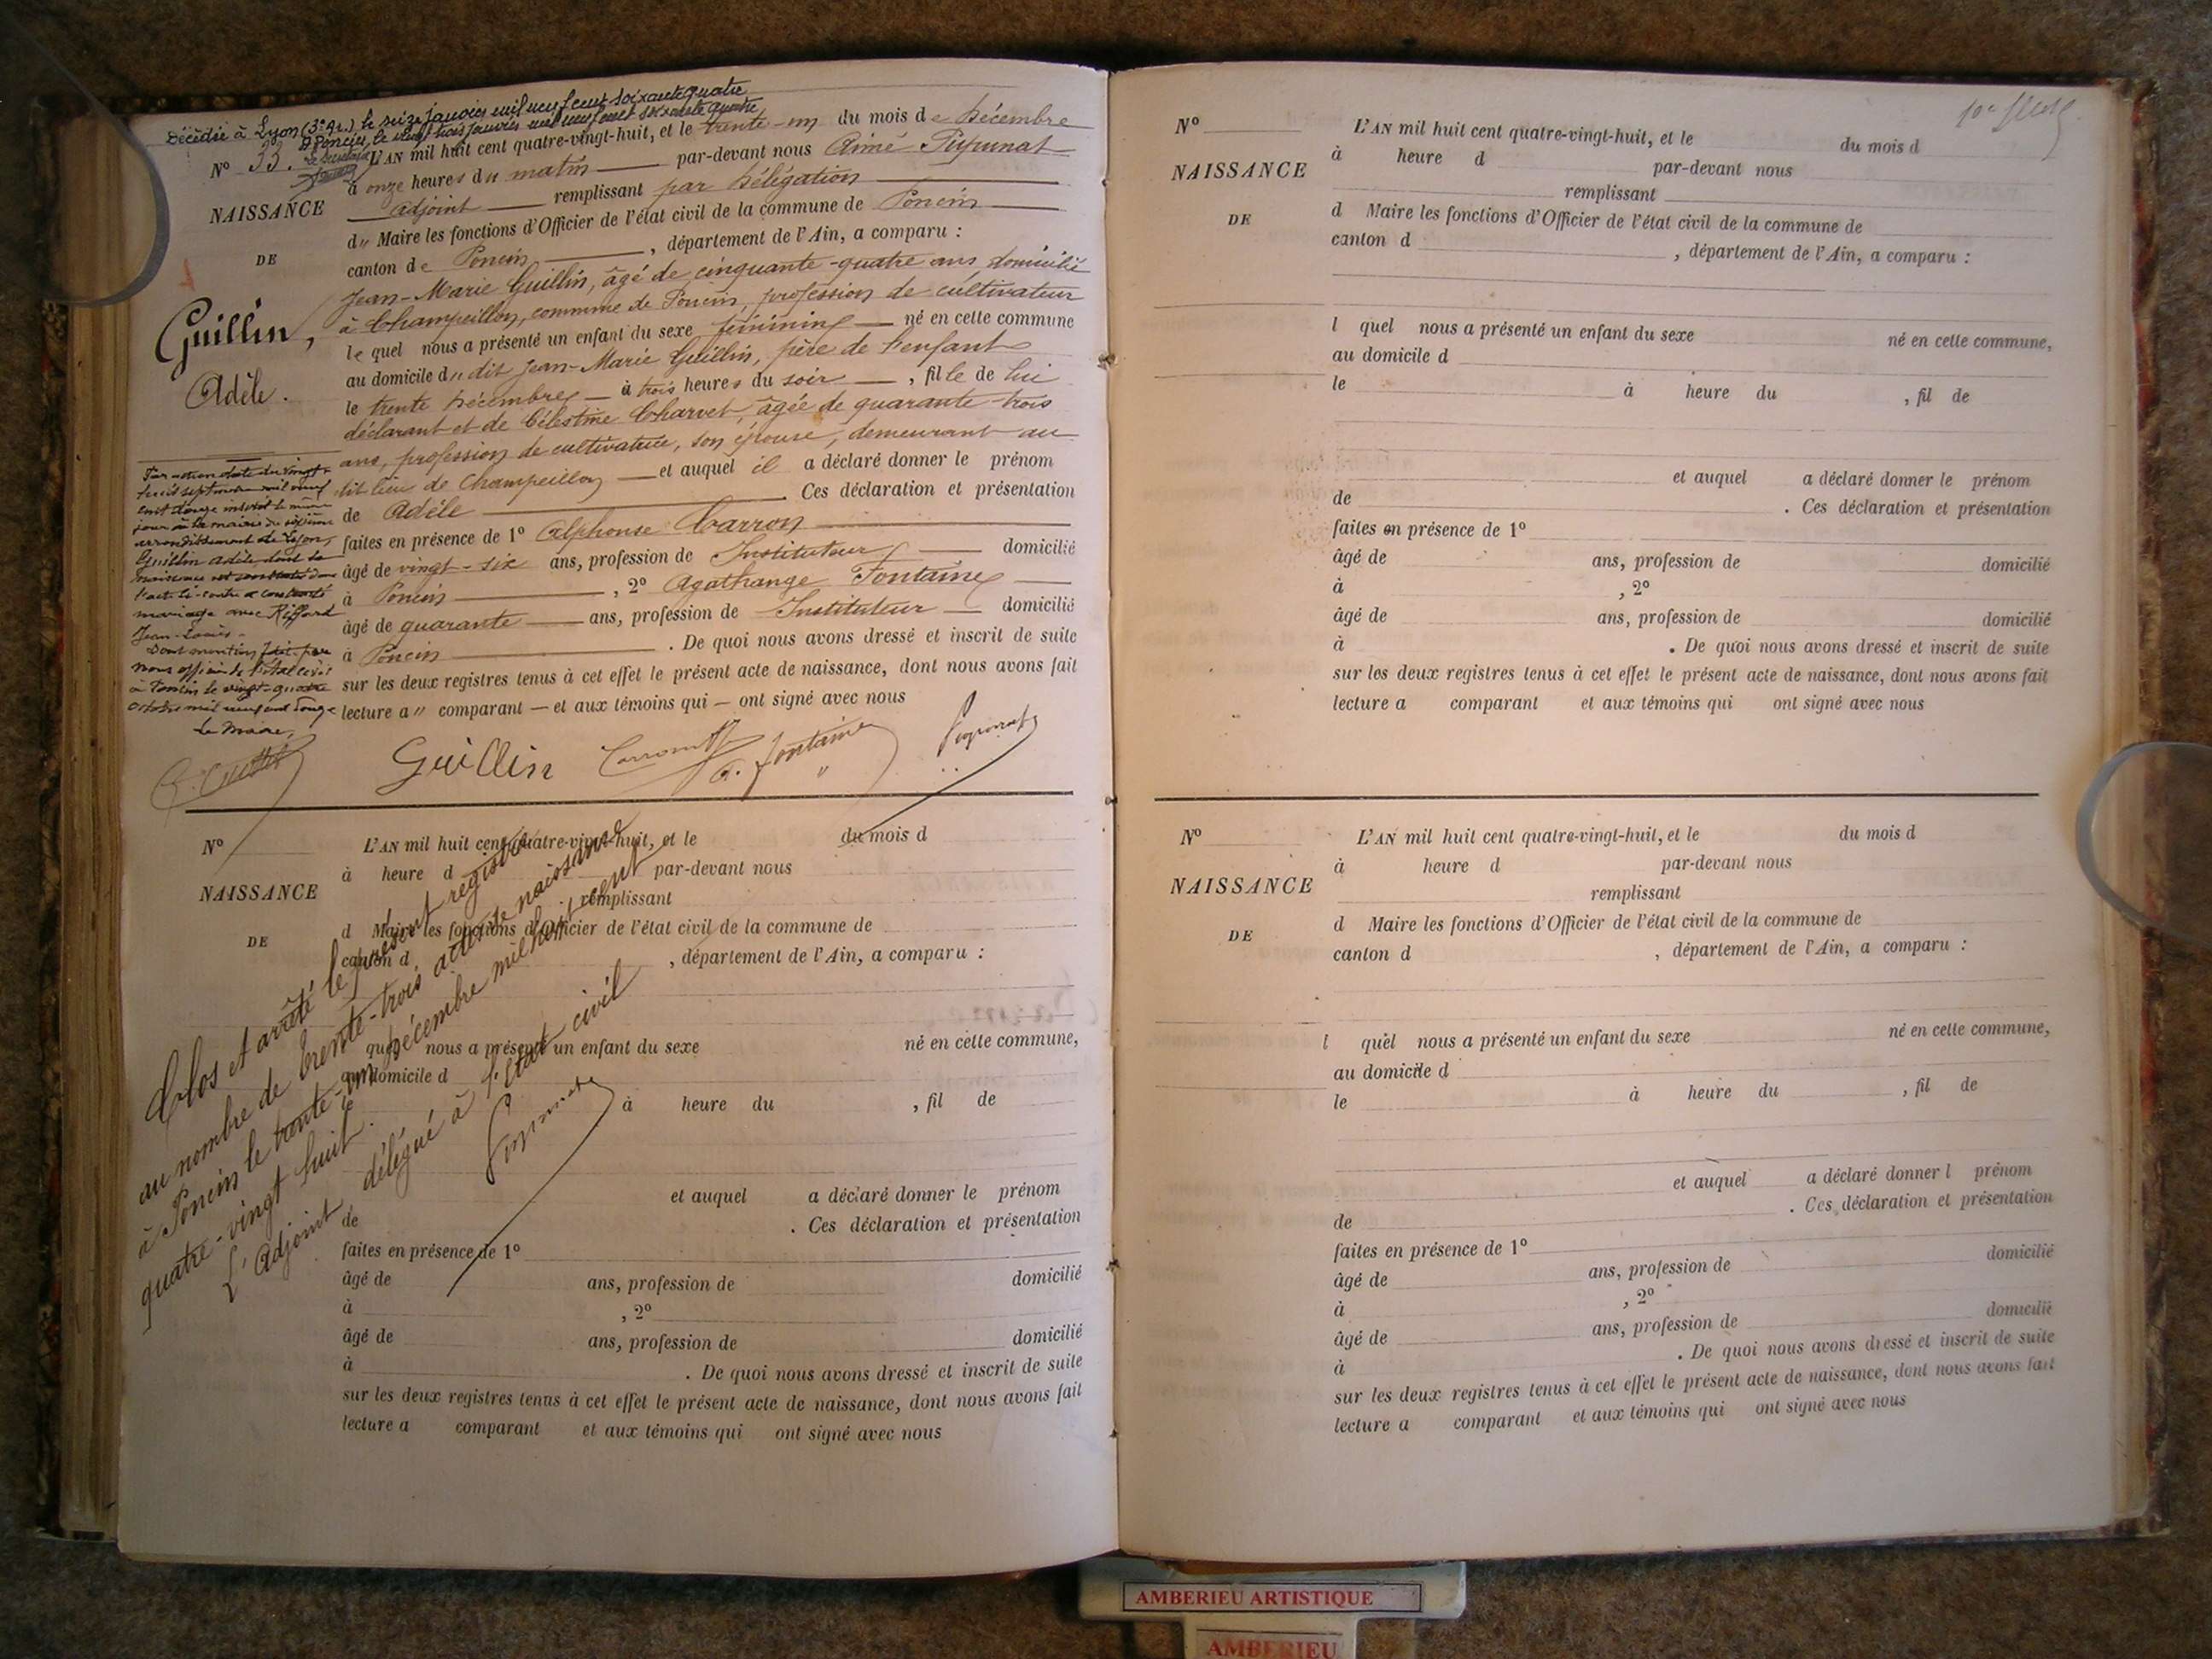 Décédée à Lyon (3e Ar.) le seize janvier mil neuf cent soixante quatre
à Poncin, le vingt trois janvier mil neuf cent soixante quatre
Le Secrétaire
No 33.
NAISSANCE
DE
Guillin,
Adèle.
L'AN mil huit cent quatre-vingt-huit, et le trente-un du mois de Décembre
à onze heures du matin par-devant nous Aimé
adjoint remplissant par délégation
d" Maire les fonctions d'Officier de l'état civil de la commune de Poncin
canton de Poncin, département de l'Ain, a comparu :
Jean-Marie Guillin, âgé de cinquante-quatre ans domicilié
à Champeillon, commune de Poncin, profession de cultivateur
le quel nous a présenté un enfant du sexe féminin né en cette commune
au domicile d" dit Jean-Marie Guillin, père de l'enfant
le trente Décembre à trois heures du soir, fille de lui
déclarant et de Célestine Charvet, âgée de quarante-trois
ans, profession de cultivatrice, son épouse, demeurant au
dit lieu de Champeillon et auquel il a déclaré donner le prénom
de Adèle. Ces déclaration et présentation
faites en présence de 1º Alphonse Carron
âgé de vingt-six ans, profession de Instituteur domicilié
à Poncin, 2º Agathange Fontaine
âgé de quarante ans, profession de Instituteur domicilié
à Poncin. De quoi nous avons dressé et inscrit de suite
sur les deux registres tenus à cet effet le présent acte de naissance, dont nous avons fait
lecture a" comparant — et aux témoins qui — ont signé avec nous
Par acte en date du vingt-
trois septembre mil neuf
cent douze inscrit le même
jour à la mairie du sixième
arrondissement de Lyon,
Guillin Adèle, dont la
naissance est constatée dans
l'acte ci-contre a contracté
mariage avec Riffard
Jean-Louis.
Dont mention faite par
nous officier de l'état civil
à Poncin le vingt-quatre
octobre mil neuf cent douze
Le Maire,
Guillin Carron A. Fontaine
No
NAISSANCE
DE
L'AN mil huit cent quatre-vingt-huit, et le du mois d
à heure d par-devant nous
remplissant
d Maire les fonctions d'Officier de l'état civil de la commune de
canton d , département de l'Ain, a comparu :
quel nous a présenté un enfant du sexe né en cette commune,
au domicile d
le à heure du , fil de
et auquel a déclaré donner le prénom
de . Ces déclaration et présentation
faites en présence de 1º
âgé de ans, profession de domicilié
à , 2º
âgé de ans, profession de domicilié
à . De quoi nous avons dressé et inscrit de suite
sur les deux registres tenus à cet effet le présent acte de naissance, dont nous avons fait
lecture a comparant et aux témoins qui ont signé avec nous
Clos et arrêté le présent registre
au nombre de trente-trois actes de naissance
à Poncin le trente-un décembre mil huit cent
quatre-vingt huit.
L'Adjoint délégué à l'état civil
No
NAISSANCE
DE
L'AN mil huit cent quatre-vingt-huit, et le du mois d
à heure d par-devant nous
remplissant
d Maire les fonctions d'Officier de l'état civil de la commune de
canton d , département de l'Ain, a comparu :
l quel nous a présenté un enfant du sexe né en cette commune,
au domicile d
le à heure du , fil de
et auquel a déclaré donner le prénom
de . Ces déclaration et présentation
faites en présence de 1º
âgé de ans, profession de domicilié
à , 2º
âgé de ans, profession de domicilié
à . De quoi nous avons dressé et inscrit de suite
sur les deux registres tenus à cet effet le présent acte de naissance, dont nous avons fait
lecture a comparant et aux témoins qui ont signé avec nous
No
NAISSANCE
DE
L'AN mil huit cent quatre-vingt-huit, et le du mois d
à heure d par-devant nous
remplissant
d Maire les fonctions d'Officier de l'état civil de la commune de
canton d , département de l'Ain, a comparu :
l quel nous a présenté un enfant du sexe né en cette commune,
au domicile d
le à heure du , fil de
et auquel a déclaré donner l prénom
de . Ces déclaration et présentation
faites en présence de 1º
âgé de ans, profession de domicilié
à , 2º
âgé de ans, profession de domicilié
à . De quoi nous avons dressé et inscrit de suite
sur les deux registres tenus à cet effet le présent acte de naissance, dont nous avons fait
lecture a comparant et aux témoins qui ont signé avec nous
AMBERIEU ARTISTIQUE
AMBERIEU